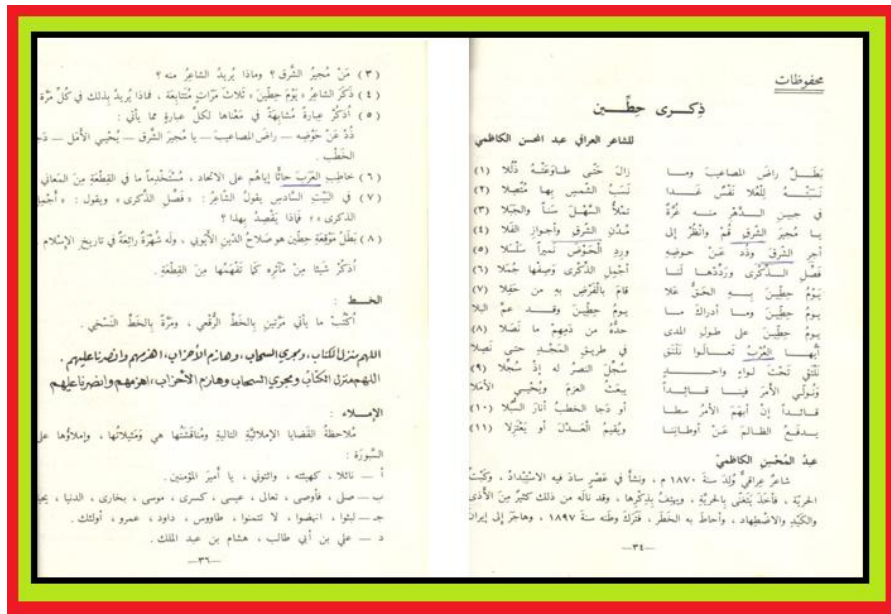 محفوظات
ذِكـرى حِطِّـــين
للشاعر العراقي عبد المحسن الكاظمي
بَطَـــلٌ راضَ المصاعيبَ ومـــا زالَ حَتَّى طـاوَعَتْـهُ ذُلُلا (١)
نَسَبَتْـــهُ لِلْعُلا نَفْسٌ غَـــدا نَسَبُ الشَّمسِ بِها مُتَّصِلا (٢)
في جبينِ الـــدَّهْرِ منـــه غُرَّةٌ تملأُ السَّهْلَ سَناً والجَبَلا (٣)
يـا مُجيرَ الشَّرقِ قُمْ وانْظُرْ إلى مُدُنِ الشَّرقِ وأجوازِ الفَلا (٤)
أجرِ الشَّرقَ وذُد عَـنْ حوضِهِ ورِدِ الْحَوْضَ نَميراً سَلْسَلا (٥)
فَصِّلِ الـــذِّكْرَى ورَدِّدْها لَنـا أَجْمِلِ الذِّكْرى وَصِفْها جُمَلا (٦)
يَـوْمُ حِطِّينَ بِـــهِ الحَـقُّ عَلا قامَ بالْفَرْضِ بِهِ من حَفِلا (٧)
يـومُ حِطِّينَ ومـا أدراكَ مـا يومُ حِطِّينَ وقـــد عمَّ البلا
يـومُ حِطِّينَ على طـولِ المدى حَدُّهُ من دَمِهِمْ ما نَصَلا (٨)
أيُّهـا العُرْبُ تَعـالَوا نَلْتَقِ في طريقِ المَجْـدِ حتى نَصِلا
نَلْتَقِ تَحْتَ لـواءٍ واحـــدٍ سُجِّلَ النصرُ له إذ سُجِّلا (٩)
وَنُولِّي الأمرَ فينـا قـــائِـداً يبعَثُ العزمَ ويُحْيِي الأمَلا
قـائـداً إنْ أبهَمَ الأمرُ سطـا أو دَجا الخطبُ أنارَ السُّبُلا (١٠)
يـدفَـعُ الظـالمَ عَنْ أوطـانِنـا ويُقيمُ العَـدْلَ أو يَعْتَزِلا (١١)
عبدُ المُحْسِنِ الكاظميّ
شاعرٌ عِراقيٌّ وُلِدَ سنةَ ١٨٧٠ م ، ونشأ في عَصْرٍ سادَ فيه الاسْتِبْدادُ ، وكَبْتُ
الحريّة ، فأخَذَ يَتَغَنّى بالحريّةِ ، ويهتِفُ بِذِكْرِها ، وقد نالَه من ذلك كثيرٌ مِنَ الأذَى
والكَيْدِ والاضْطِهادِ ، وأحاطَ به الخَطَر ، فَتَرَكَ وطنَه سنةَ ١٨٩٧ ، وهاجَرَ إلى إيران
—٣٤—
(٣) مَنْ مُجيرُ الشَّرقِ ؟ وماذا يُريدُ الشاعِرُ منه ؟
(٤) ذَكَرَ الشاعِرُ « يَوْمَ حِطِّينَ » ثَلاثَ مَرّاتٍ مُتَتابِعَة ، فماذا يُريدُ بذلك في كُلِّ مَرَّة
(٥) أُذكُرْ عِبارةً مُشابِهَةً في مَعْناها لكلِّ عبارةٍ مما يأتي :
ذُدْ عَنْ حَوْضِه — راضَ المصاعيبَ — يا مُجيرَ الشَّرق — يُحْيي الأمَل — دَجا
الخَطْب .
(٦) خاطِبِ العَرَبَ حاثًّا إياهُم على الاتحاد ، مُسْتَخْدِماً ما في القِطْعَةِ مِنَ المَعاني
(٧) في البَيْتِ السّادسِ يقولُ الشّاعِرُ : « فَصِّلِ الذِّكرى » ويقول : « أجْمِلِ
الذكرى » ؛ فَماذا يَقْصِدُ بهذا ؟
(٨) بَطَلُ مَوْقِعَةِ حِطّين هو صَلاحُ الدّينِ الأيّوبي ، ولَه شُهْرَةٌ رائِعَةٌ في تاريخِ الإسْلام
أذكُرْ شَيئا مِنْ مَآثِرِه كَما تَفْهَمُها مِنَ القِطْعَةِ .
الخـط :
أكْتُبْ ما يأتي مَرَّتينِ بالخَطِّ الرُّقْعي ، ومَرَّةً بالخَطِّ النَّسْخي .
اللهم منزل الكتاب ، ومجري السحاب ، وهازم الأحزاب ، اهزمهم وانصرنا عليهم .
اللهم منزل الكتاب ومجري السحاب وهازم الأحزاب ، اهزمهم وانصرنا عليهم
الإمــلاء :
مُلاحظةُ القَضايا الإملائيَّةِ التاليةِ ومُناقَشَتُها هي وَمَثيلاتُها ، وإملاؤُها على
السَّبورَة :
أ — نائلا ، كهيئته ، وائتوني ، يا أميرَ المُؤمنين .
ب — صلى ، فأوصى ، تعالى ، عيسى ، كسرى ، موسى ، بخارى ، الدنيا ، يحيا
جـ — لبثوا ، انهضوا ، لا تتمنوا ، طاووس ، داود ، عمرو ، أولئك .
د — علي بن أبي طالب ، هشام بن عبد الملك .
—٣٦—